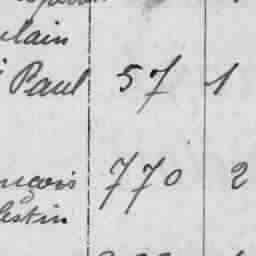 ulain
Paul 57 1
nçois 770 2
lestin